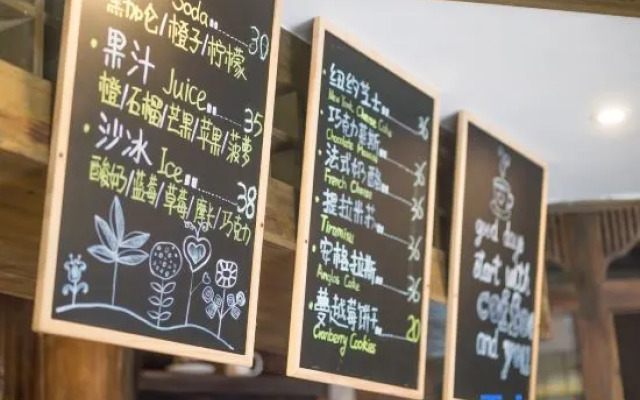 Soda 30
黑加仑/橙子/柠檬
果汁 Juice 35
橙/石榴/芒果/苹果/菠萝
沙冰 Ice 38
酸奶/蓝莓/草莓/摩卡/巧克力
纽约芝士 36
New York Cheese Cake
巧克力慕斯 36
Chocolate Mousse
法式奶酪 36
French Cheese
提拉米苏 36
Tiramisu
安格拉斯 36
Anglas Cake
蔓越莓饼干 20
Cranberry Cookies
good days
start with
coffee
and you